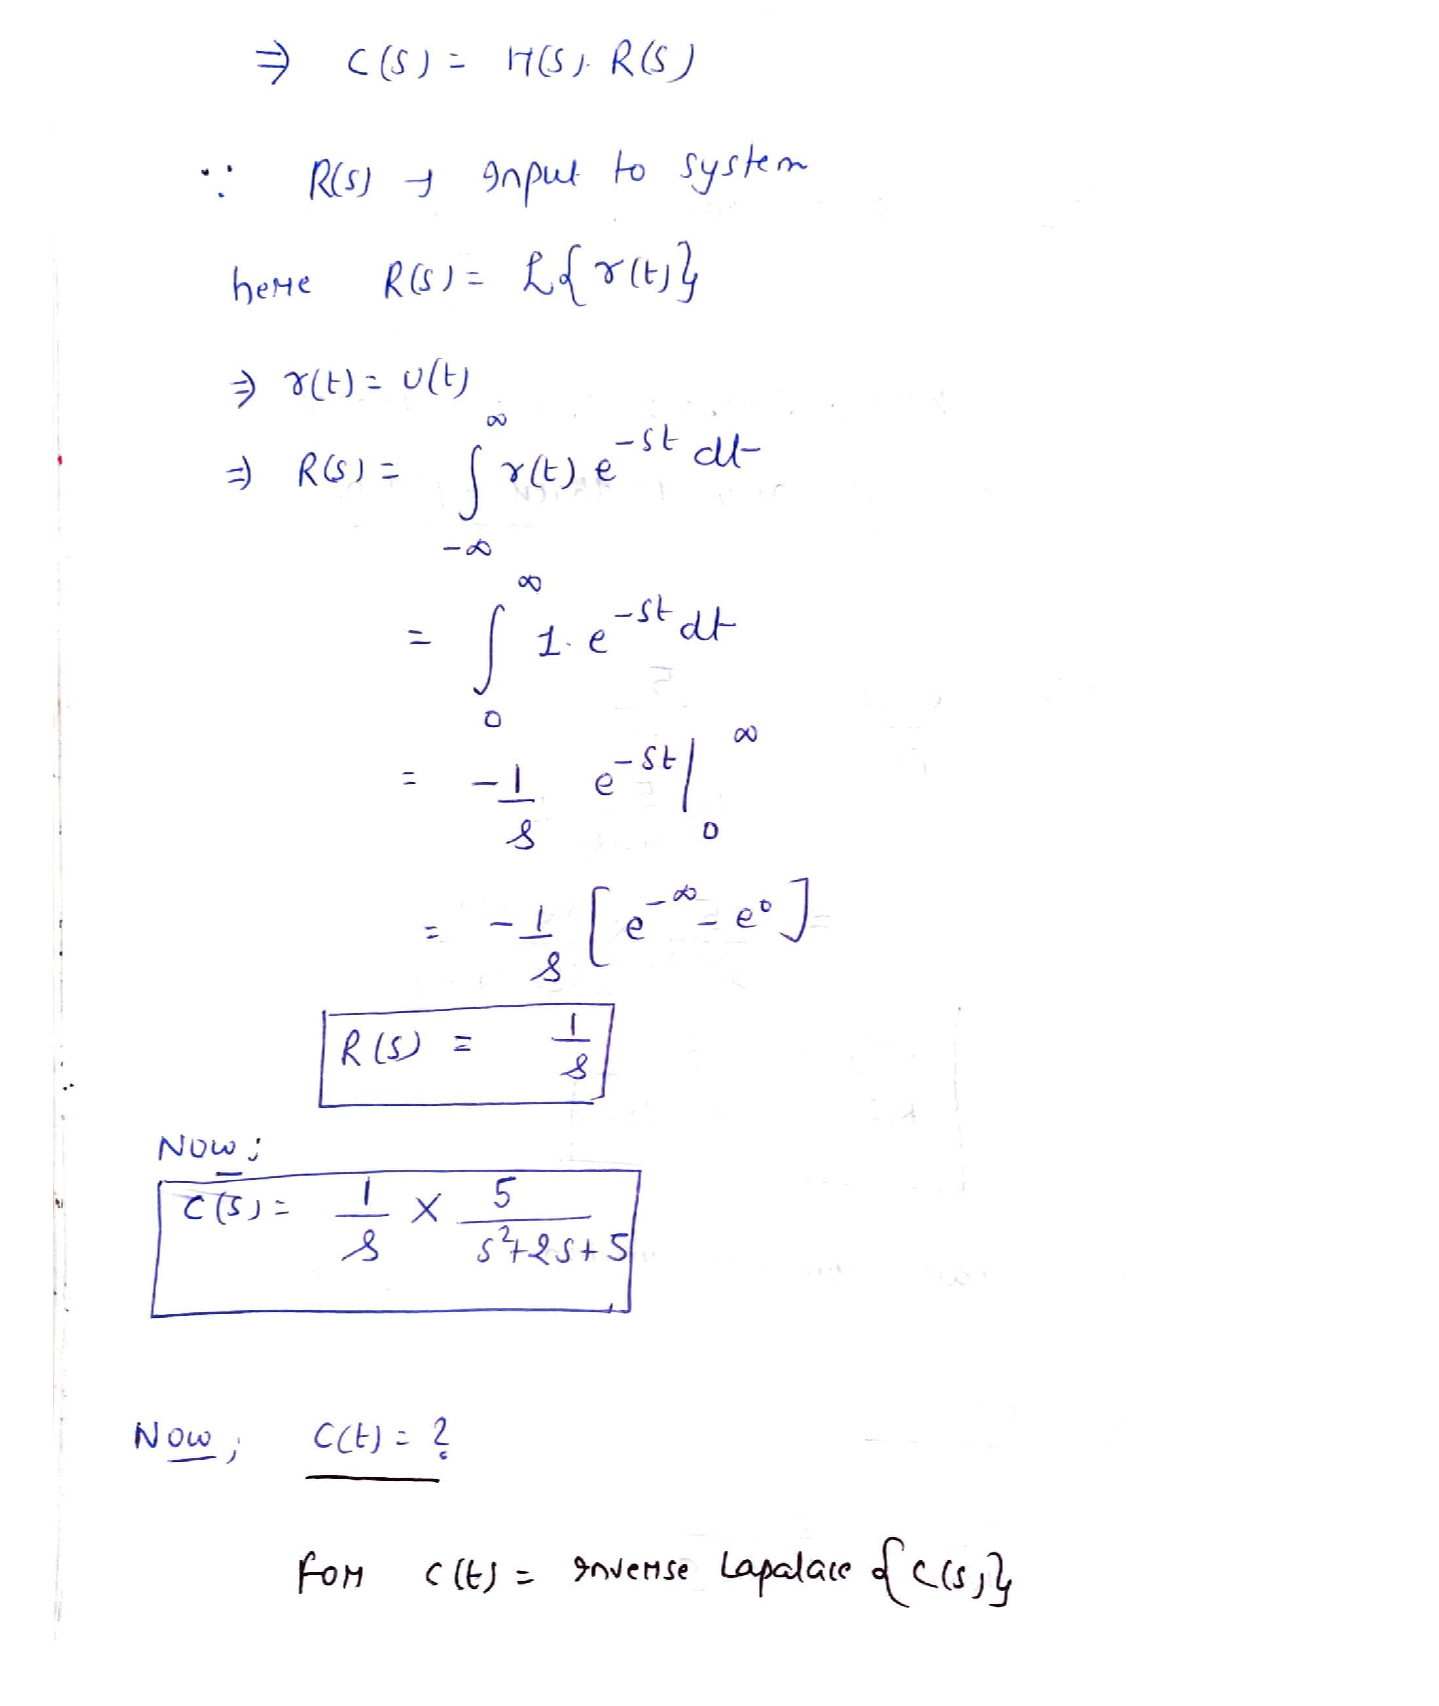 ⇒ C(S) = H(S). R(S)
∵ R(S) → Input to system
here R(S) = ℒ{r(t)}
⇒ r(t) = u(t)
⇒ R(S) = ∫_{-∞}^{∞} r(t) e^{-st} dt
= ∫_{0}^{∞} 1. e^{-st} dt
= -1/s e^{-st} |_{0}^{∞}
= -1/s [e^{-∞} - e^{0}]
R(S) = 1/s
Now;
C(S) = 1/s × 5/(s²+2s+5)
Now, C(t) = ?
for C(t) = Inverse Lapalace {C(S)}